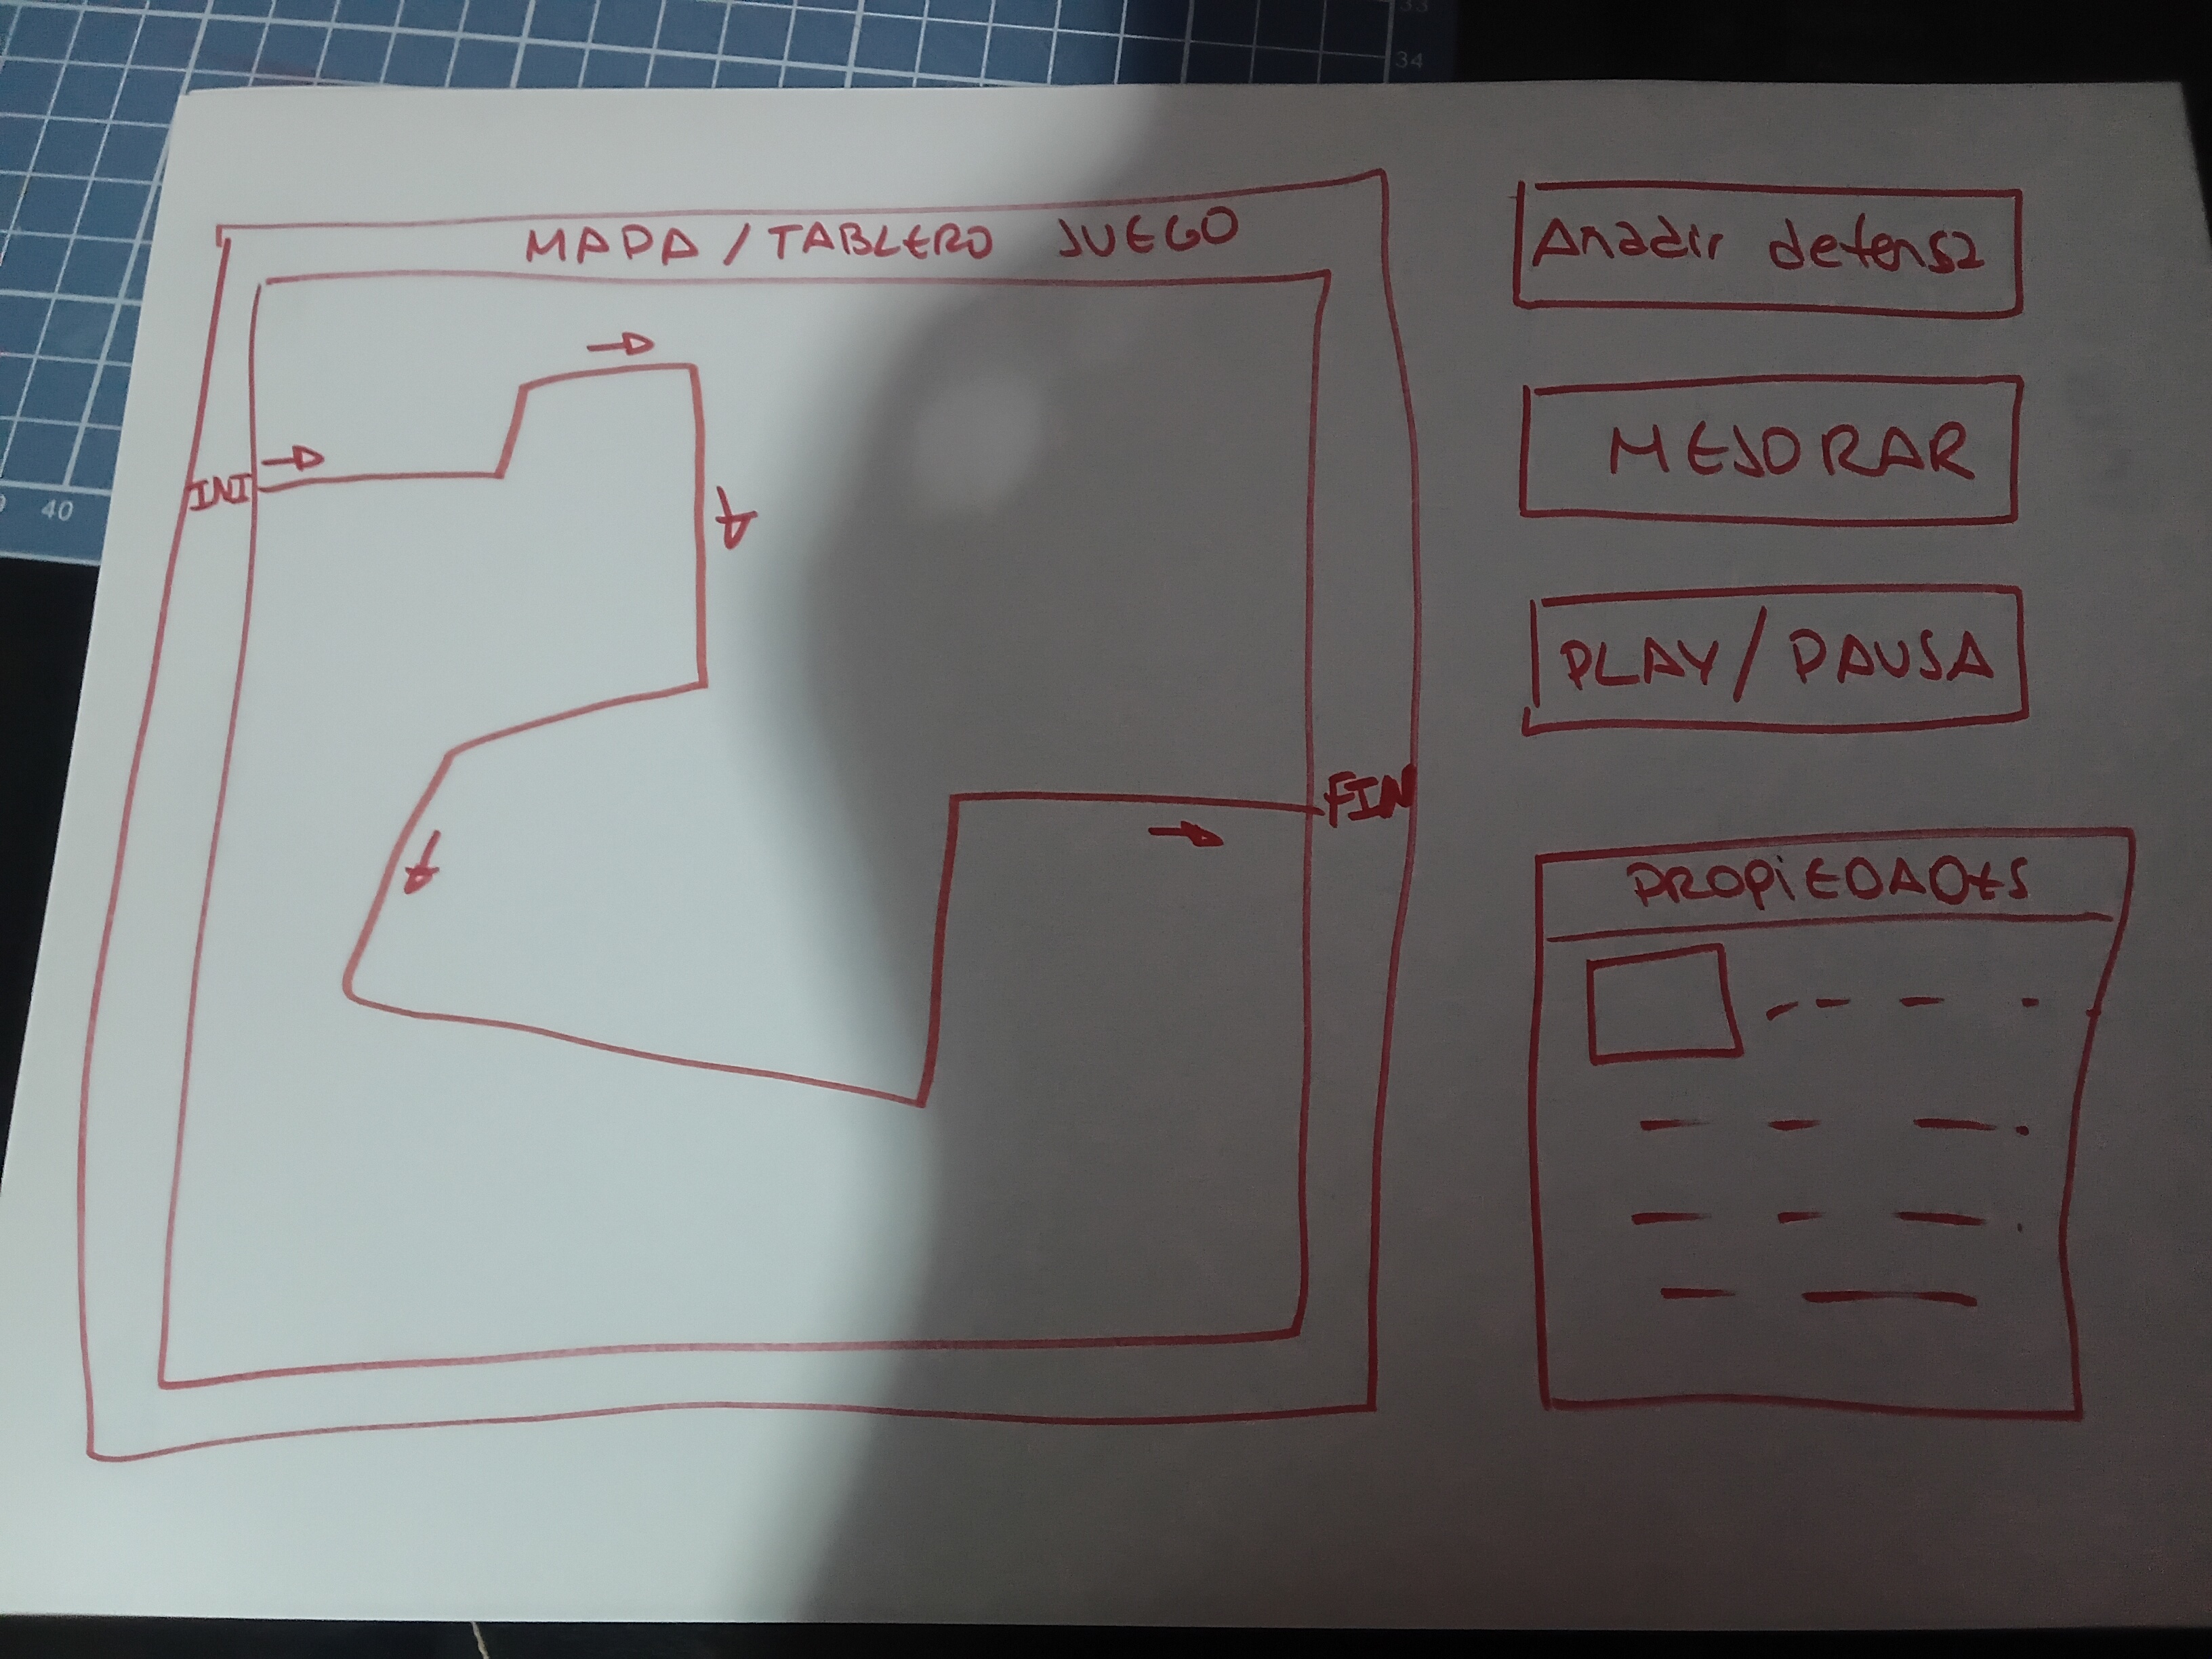 MAPA / TABLERO JUEGO
INI
FIN
Añadir defensa
MEJORAR
PLAY / PAUSA
PROPiEDADES
33
34
40